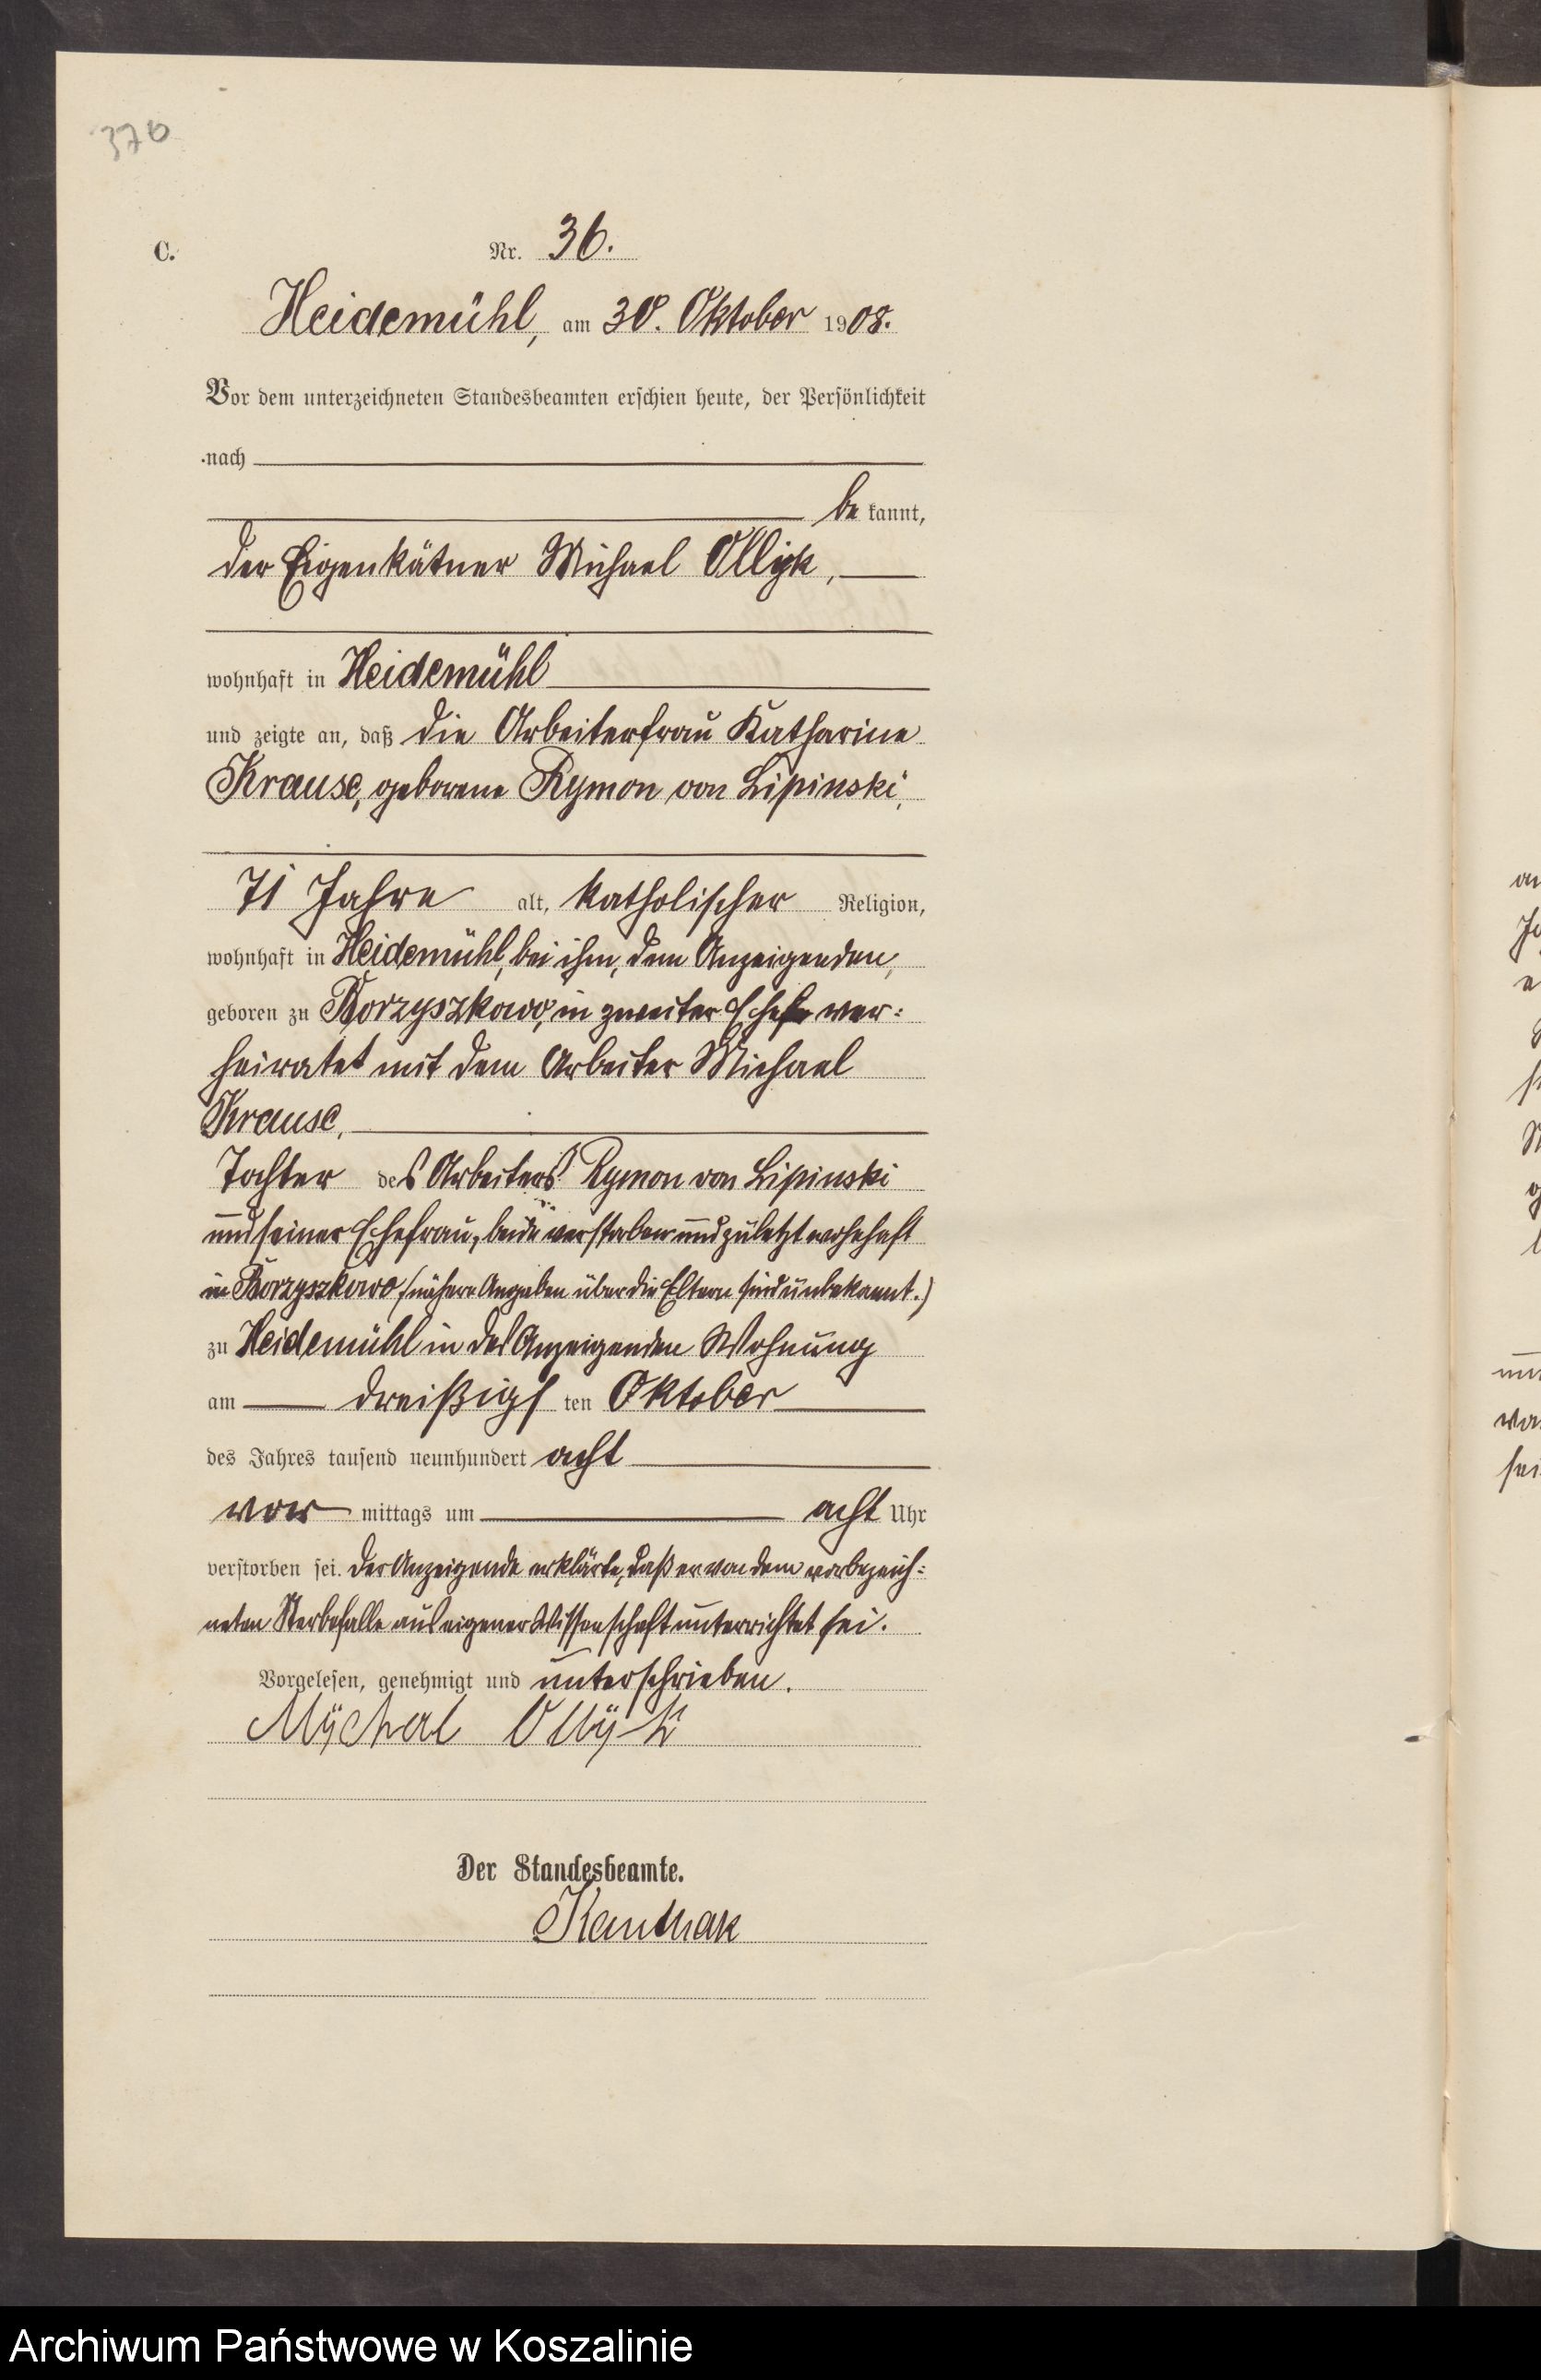 370
C.
Nr. 36.
Heidemühl, am 30. Oktober 1908.
Vor dem unterzeichneten Standesbeamten erschien heute, der Persönlichkeit
nach
be kannt,
der Eigenkätner Michael Ollyk,
wohnhaft in Heidemühl
und zeigte an, daß die Arbeiterfrau Katharine
Krause, geborene Rymon von Lipinski,
71 Jahre alt, katholischer Religion,
wohnhaft in Heidemühl, bei ihm, dem Anzeigenden,
geboren zu Borzyszkowo, in zweiter Ehe ver:
heiratet mit dem Arbeiter Michael
Krause,
Tochter des Arbeiters Rymon von Lipinski
und seiner Ehefrau, beide verstorben und zuletzt wohnhaft
in Borzyszkowo (nähere Angaben über die Eltern sind unbekannt.)
zu Heidemühl in des Anzeigenden Wohnung
am dreißigs ten Oktober
des Jahres tausend neunhundert acht
vor mittags um acht Uhr
verstorben sei. Der Anzeigende erklärte, daß er von dem vorbezeich:
neten Sterbefalle aus eigener Wissenschaft unterrichtet sei.
Vorgelesen, genehmigt und unterschrieben.
Mÿchal Ollÿk
Der Standesbeamte.
Kanthak
Archiwum Państwowe w Koszalinie